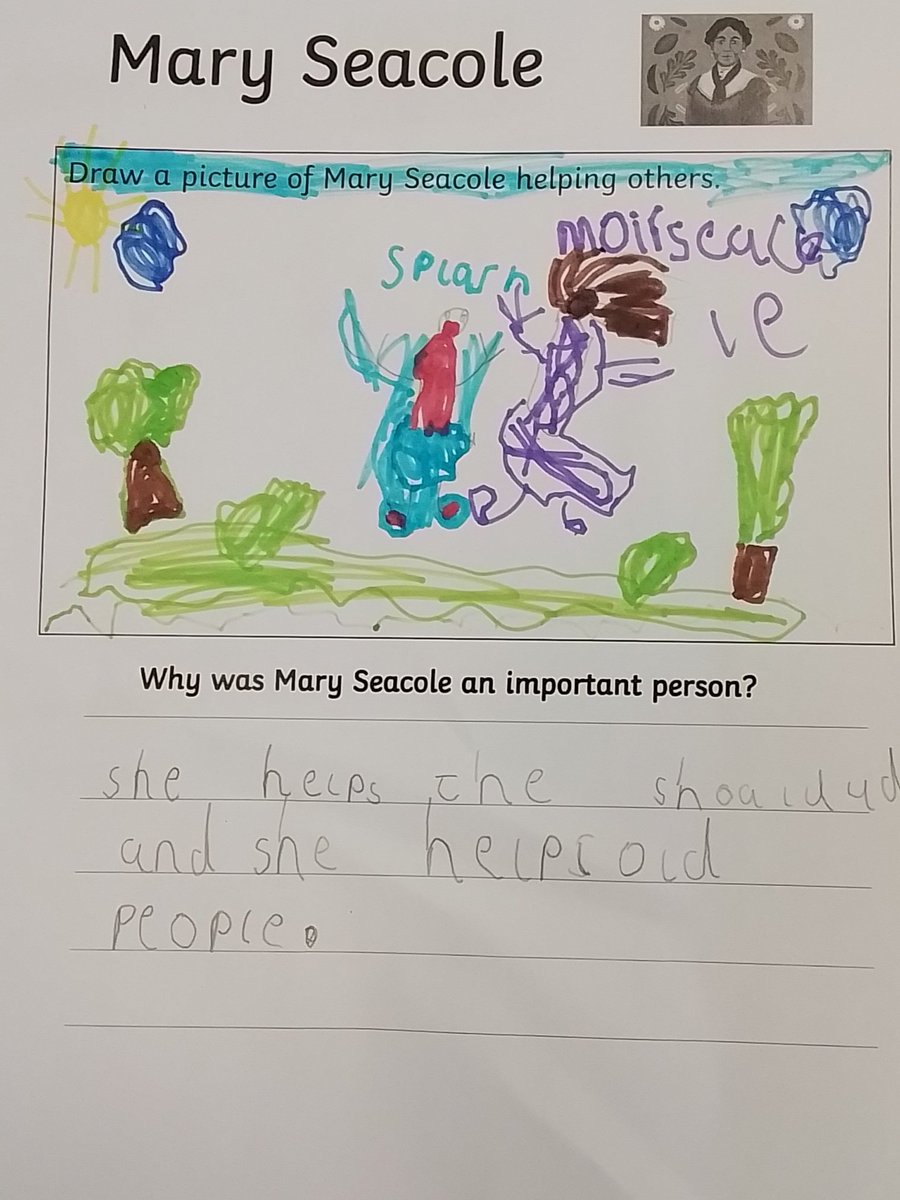 Mary Seacole
Draw a picture of Mary Seacole helping others.
splash
Why was Mary Seacole an important person?
she helps the
and she helps old
people.